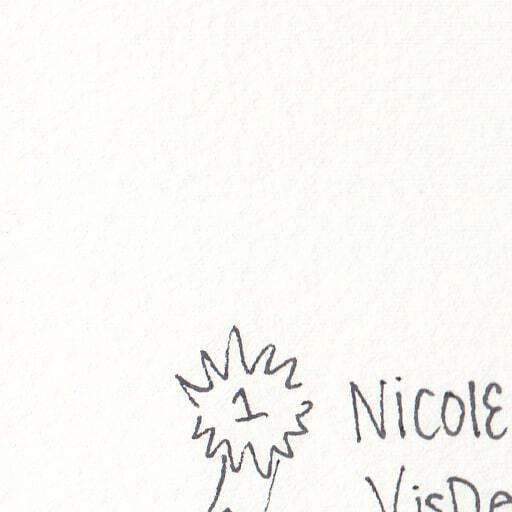 1
Nicole
VisDe